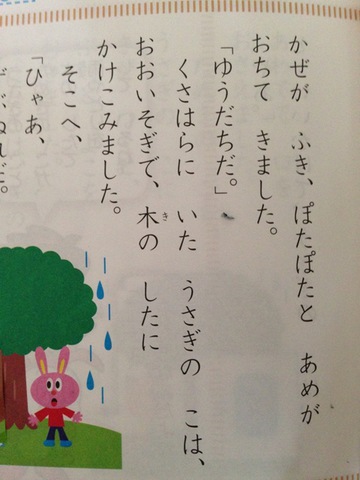 かぜが ふき、ぽたぽたと あめが
おちて きました。
「ゆうだちだ。」
くさはらに いた うさぎの こは、
おおいそぎで、木の したに
き
かけこみました。
そこへ、
「ひゃあ、